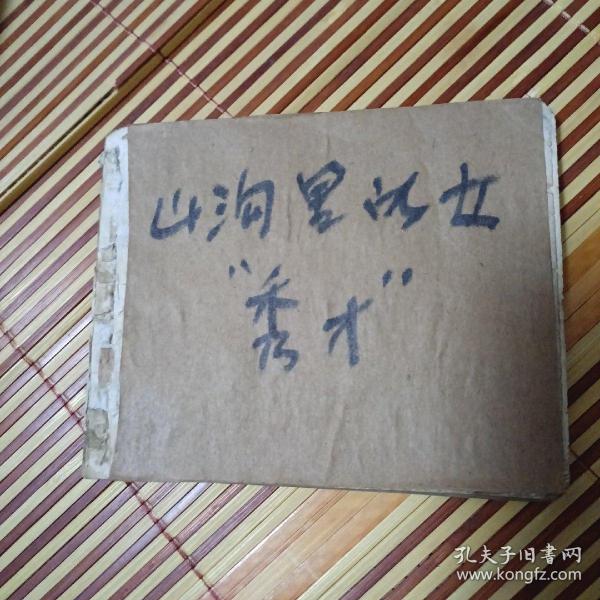 山沟里的女
"秀才"
孔夫子旧書网
www.kongfz.com